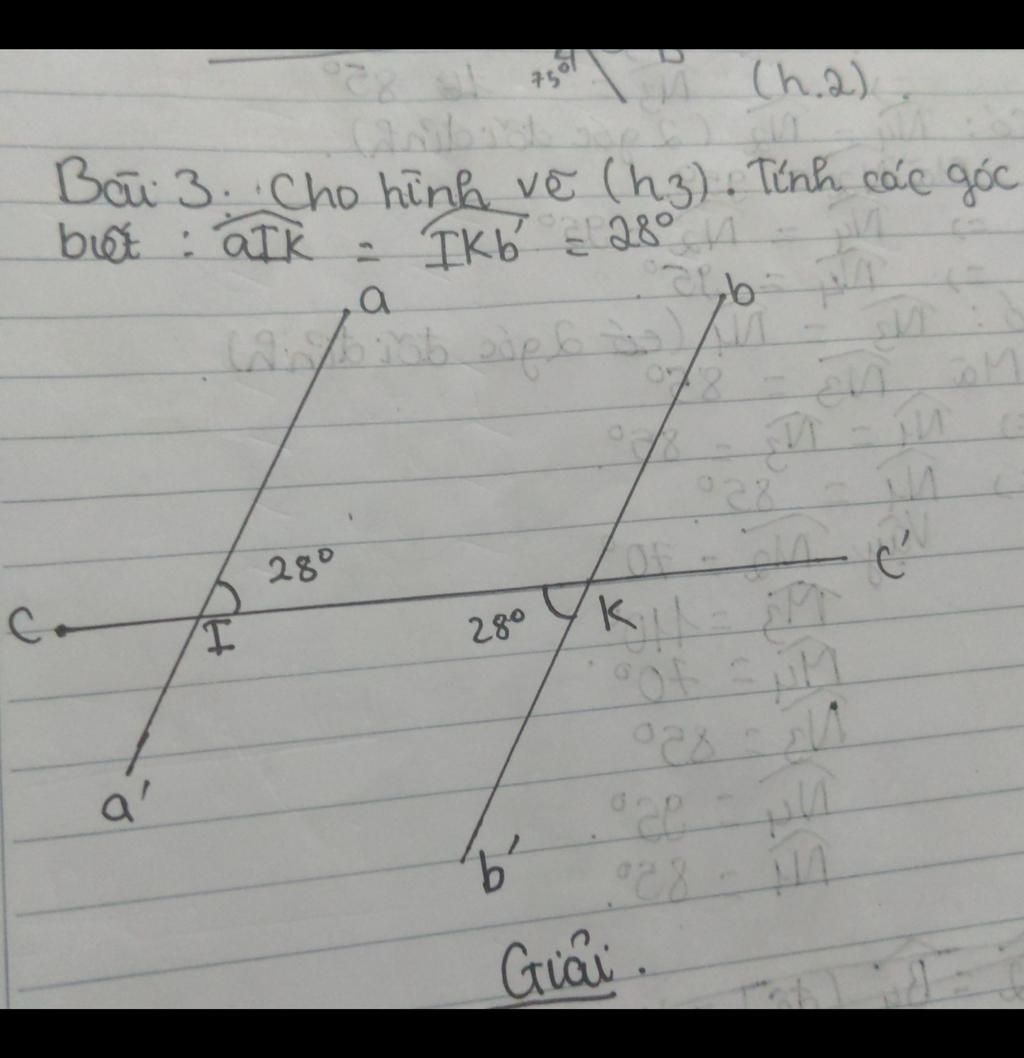 75° (h.2).
Bài 3. Cho hình vẽ (h3). Tính các góc
biết : aIK = IKb' = 28°
a b
28° c'
c I 28° K
a'
b'
Giải.